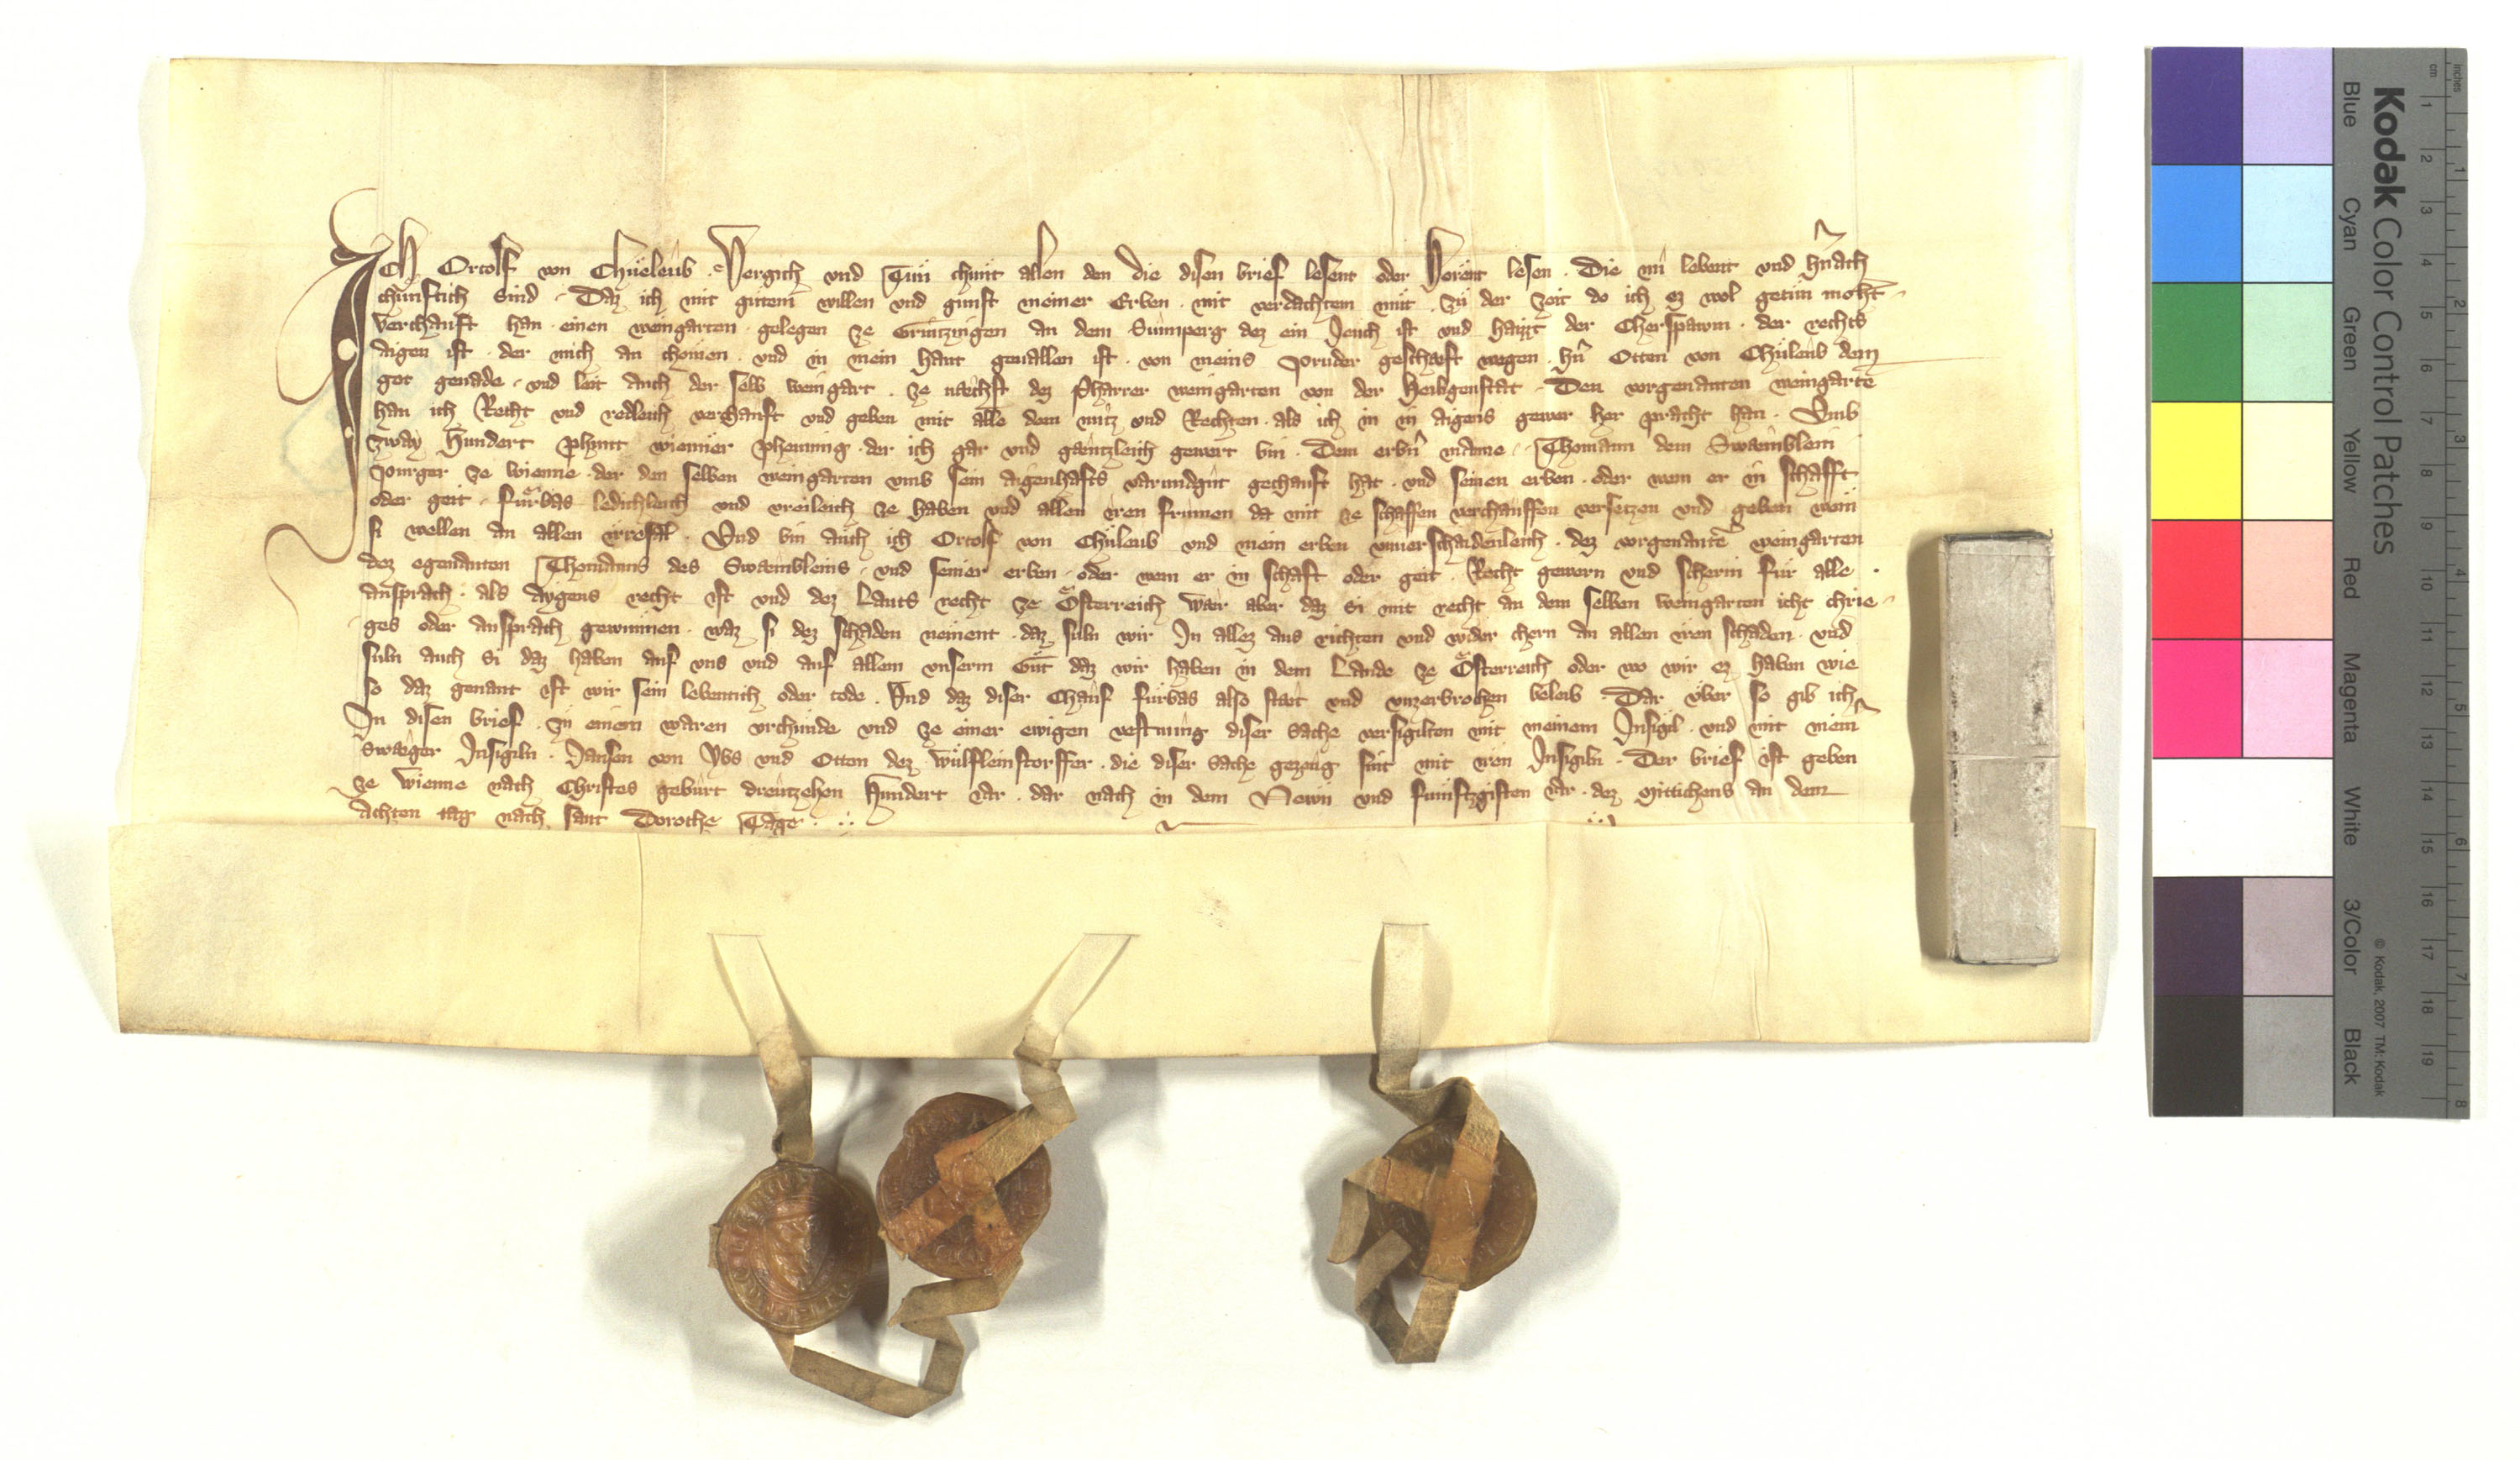 Ich Ortolf von Chüeleub. Vergich vnd Tün chunt allen den die disen brief lesent oder Hörent lesen. Die nu lebent vnd hñach
chunftich sind. Daz ich mit gütem willen vnd gunst meiner Erben. mit verdachtem müt. zü der zeit do ich ez wol getün moht
verchauft han. einen weingarten. gelegen ze Grintzingen an dem Sunnperg dez ein Jeuch ist vnd haizzt der Cherspawm. der rechts
aigen ist. der mich an chomen. vnd in mein hant geuallen ist. von meins Pruder geschaeft wegen. hñ Otten von Chüleub dem
got genade. vnd leit auch der selb weingart. ze naechst dez Pharrer weingarten von der Heiligenstat. Den vorgenanten weingarte
han ich Recht vnd redleich verchauft vnd geben mit alle dem nutz vnd Rechten. als ich in in aigens gewer her pracht han. Vmb
zway Hundert phunt wienner phenning. der ich gar vnd gaentzleich gewert bin. Dem erbñ manne. Thomann dem Swaemblein
Purger ze wienne. der den selben weingarten vmb sein aigenhafts varundgüt gechauft hat. vnd seinen erben. oder wem er in schafft
oder geit. fürbas ledichleich vnd vreileich ze haben vnd allen iren frumen da mit ze schaffen verchauffen versetzen vnd geben wem
si wellen an allen irresal. Vnd bin auch ich Ortolf von Chüleub vnd mein erben vnuerschaidenleich. dez vorgenante weingarten
dez egenanten Thomanns des Swaembleins. vnd seiner erben. oder wem er in schaft oder geit. Recht gewern vnd scherm für alle
ansprach. als aygens recht ist vnd dez Lants recht ze Österreich waer aber daz si mit recht an dem selben weingarten icht chrie
ges oder ansprach gewunnen. waz si dez schaden nement. daz suln wir In allez aus richten vnd wider chern an allen iren schaden. vnd
suln auch si daz haben auf vns vnd auf allem vnserm Güt daz wir haben in dem Lande ze Österreich oder wo wir ez haben wie
so daz genant ist wir sein lebentich oder tode. Vnd daz diser Chauf fürbas also staet vnd vnzerbrochen beleib. Dar über so gib ich
In disen brief. zü einem waren vrchunde vnd ze einer ewigen vestnung diser sache versigilten mit meinem Insigil. vnd mit meiñ
Swaeger Insigiln. Jansen von Ybs vnd Otten dez wülfleinstorffer. die diser sache gezeug sint mit iren Insigiln. Der brief ist geben
ze wienne nach Christes gebürt dreutzehen Hundert iar. dar nach in dem Newn vnd funftzgisten iar. dez Mittichens an dem
achten tag nach sant Dorothe Tage.
Kodak Color Control Patches
Blue Cyan Green Yellow Red Magenta White 3/Color Black
© Kodak, 2007 TM: Kodak
cm 1 2 3 4 5 6 7 8 9 10 11 12 13 14 15 16 17 18 19
inches 1 2 3 4 5 6 7 8